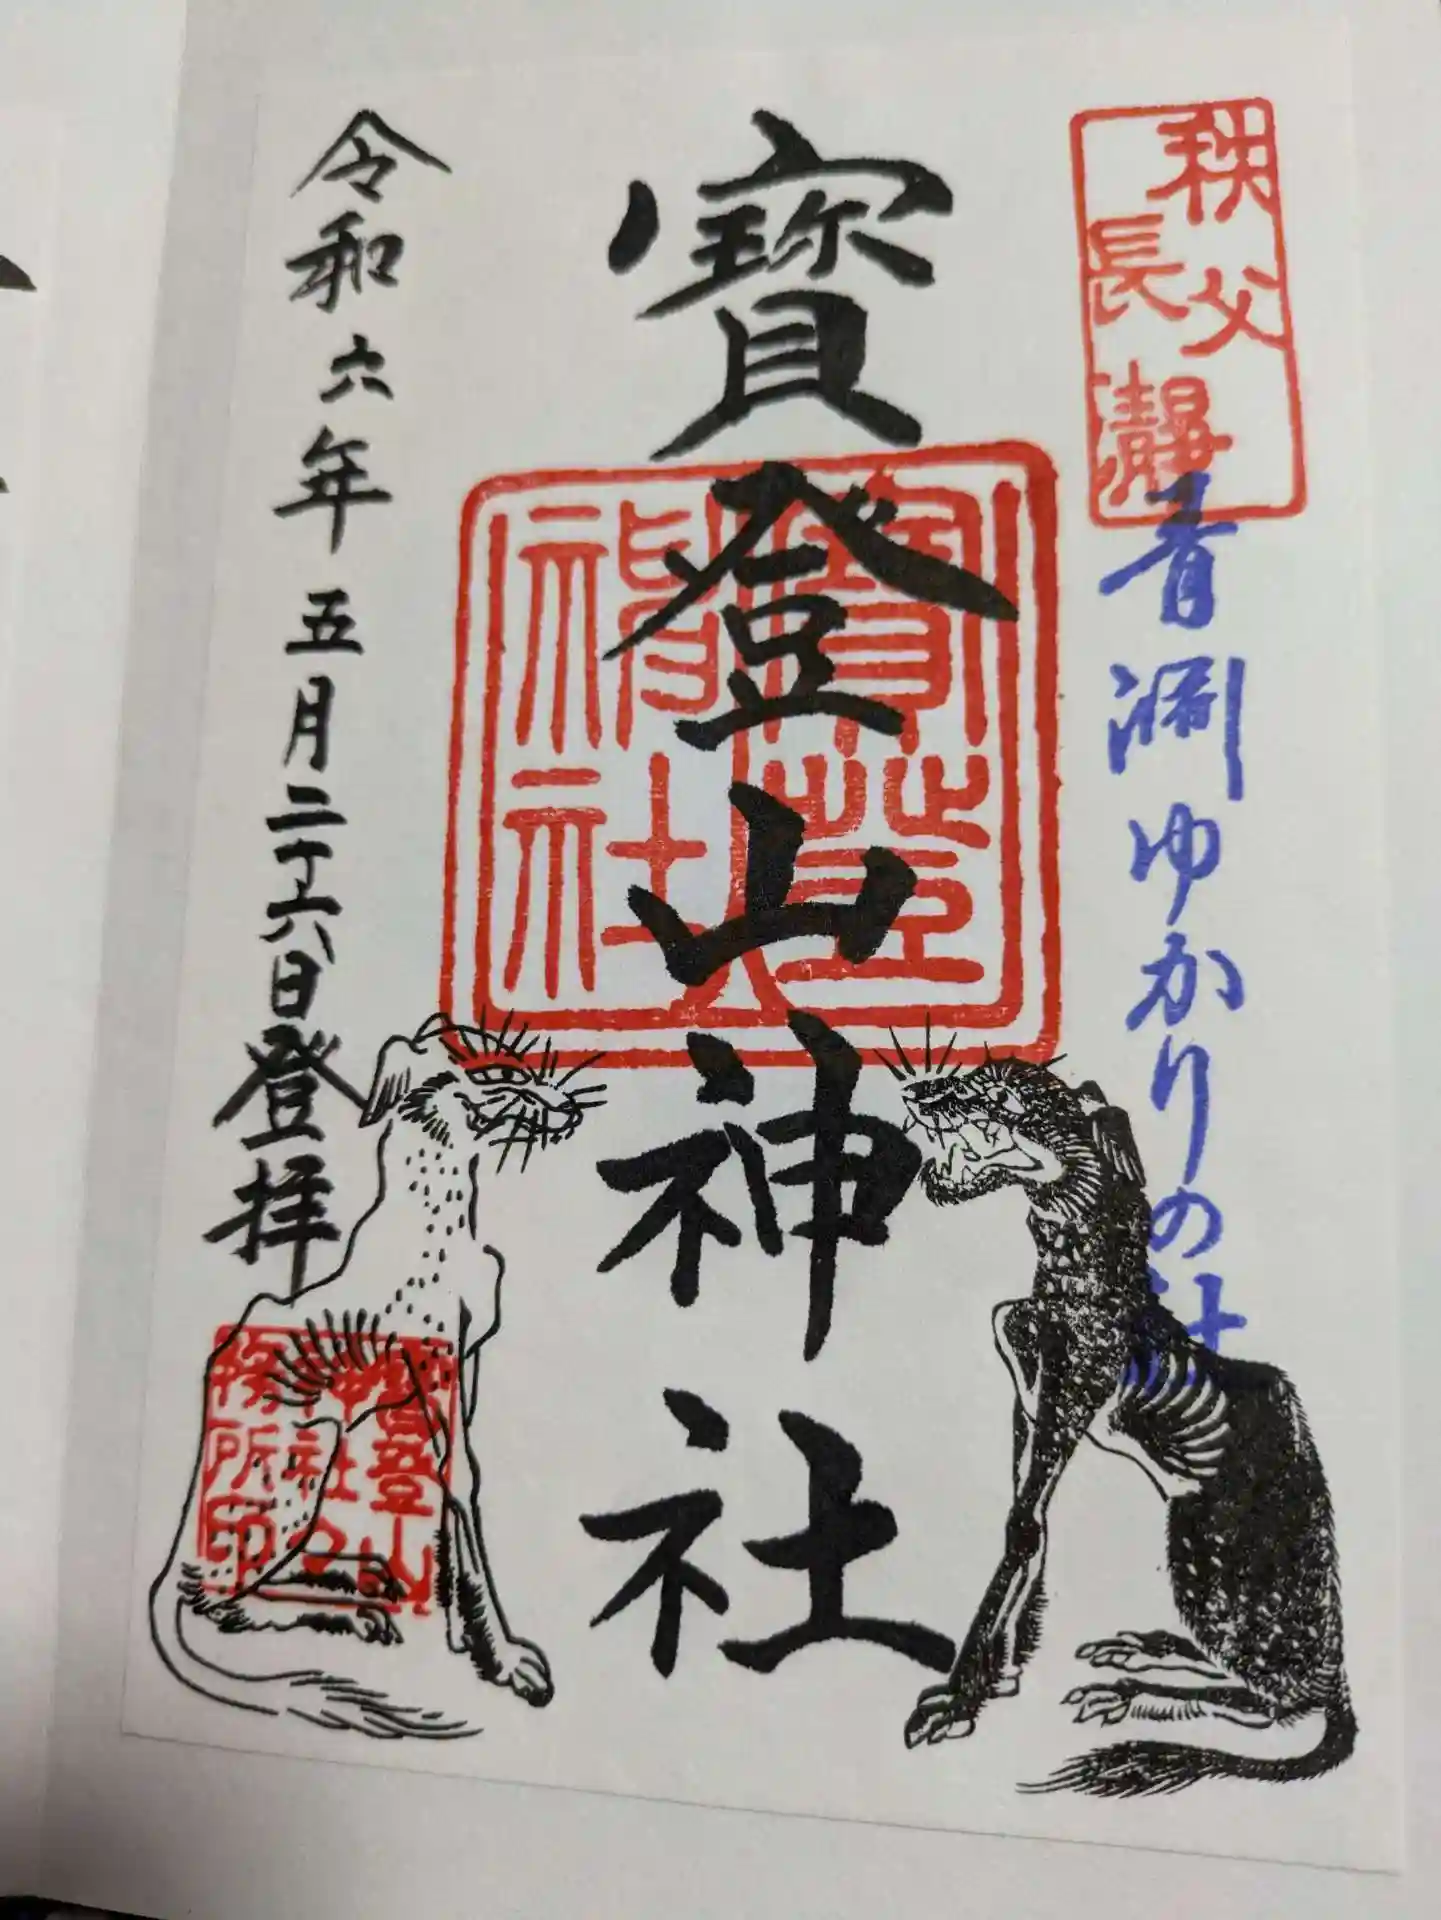 秩父
長瀞
青淵ゆかりの社
寶登山神社
寶登山
神社
令和六年五月二十六日登拝
寶登山
神社之
務所印